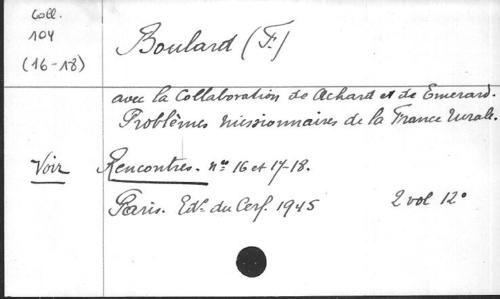 Coll.
104
(16-18)
Boulard (F.)
avec la Collaboration de Achard et de Emerard.
Problèmes missionnaires de la France rurale.
Voir
Rencontres. nos 16 et 17-18.
Paris. Edns du Cerf. 1945
2 vol 12°